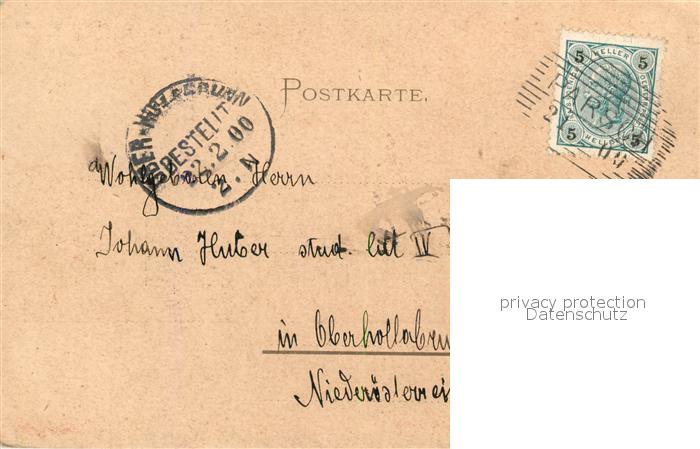 POSTKARTE.
5 HELLER 5
5 5
BESTELLT
22.2.00
2.N
Wohlgeboren Herrn
Johann Huber stud. litt IV
in Oberhollabru
Niederösterrei
privacy protection
Datenschutz